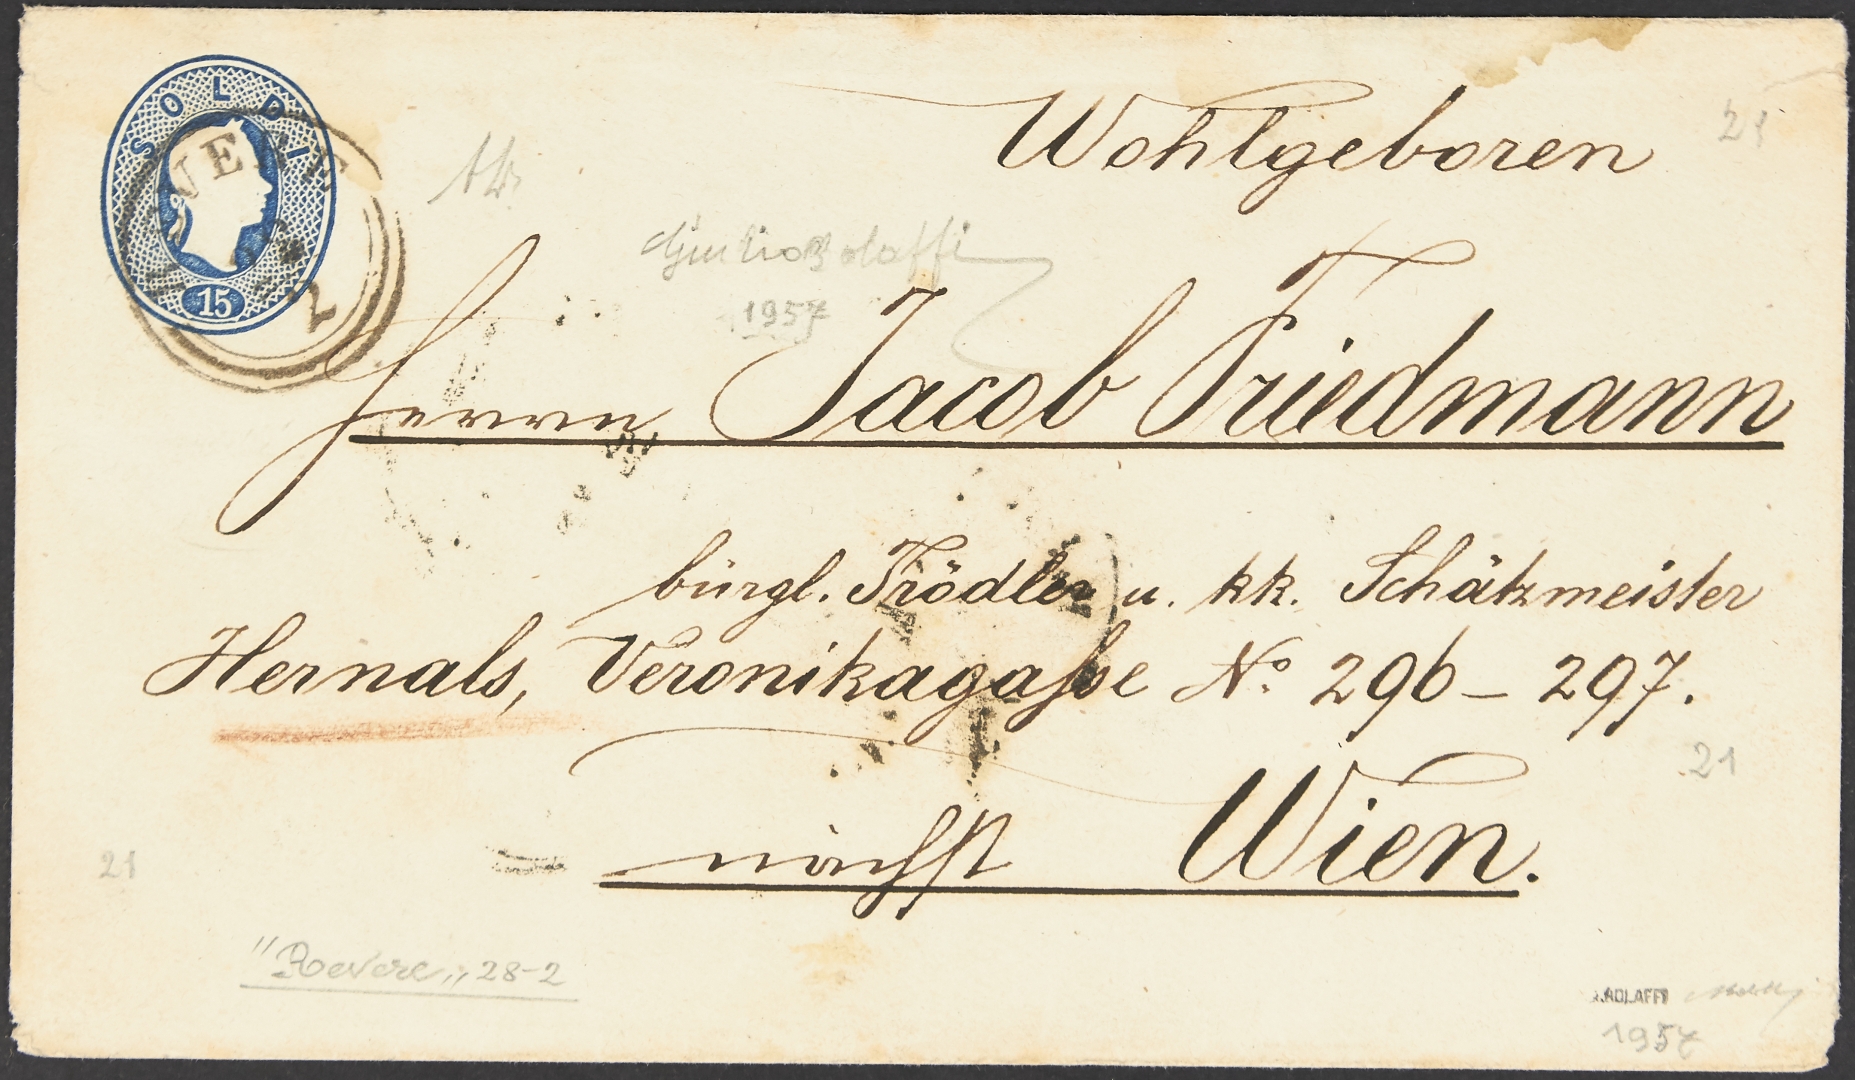 SOLDI
15
Wohlgeboren
21
Giulio Bolaffi
1957
Herrn Jacob Friedmann
bürgl. Trödler u. kk. Schätzmeister
Hernals, Veronikagaße No. 296 – 297.
21
nächst Wien.
21
"Revere" 28-2
BOLAFFI
1957